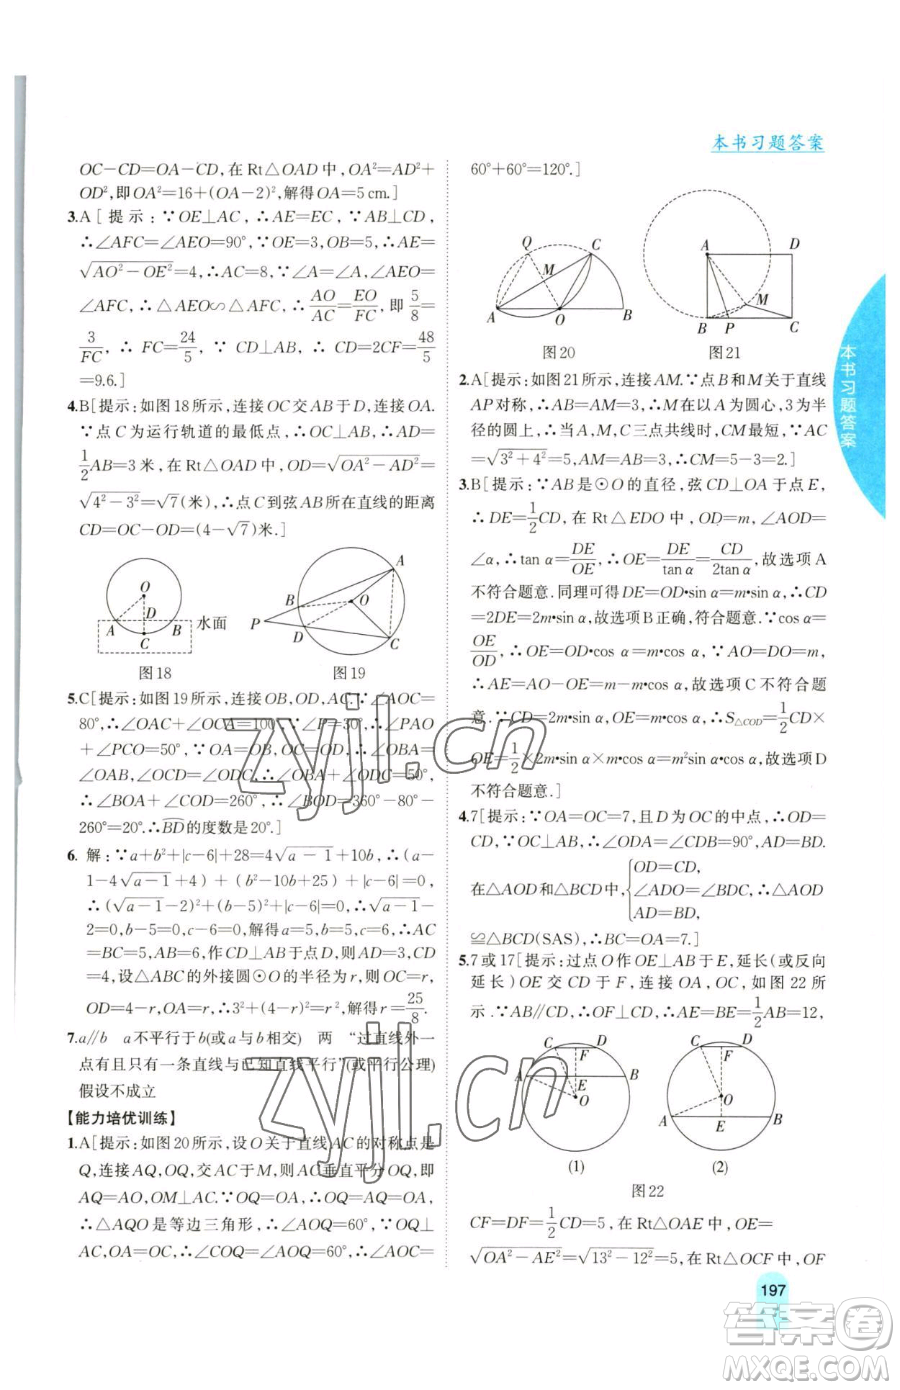 本书习题答案
OC－CD＝OA－CD，在Rt△OAD中，OA²＝AD²＋
OD²，即OA²＝16＋(OA－2)²，解得OA＝5 cm.］
3.A［提示：∵OE⊥AC，∴AE＝EC，∵AB⊥CD，
∴∠AFC＝∠AEO＝90°，∵OE＝3，OB＝5，∴AE＝
√(AO²－OE²)＝4，∴AC＝8，∵∠A＝∠A，∠AEO＝
∠AFC，∴△AEO∽△AFC，∴AO/AC＝EO/FC，即5/8＝
3/FC，∴FC＝24/5，∵CD⊥AB，∴CD＝2CF＝48/5
＝9.6.］
4.B［提示：如图18所示，连接OC交AB于D，连接OA.
∵点C为运行轨道的最低点，∴OC⊥AB，∴AD＝
1/2AB＝3米，在Rt△OAD中，OD＝√(OA²－AD²)＝
√(4²－3²)＝√7(米)，∴点C到弦AB所在直线的距离
CD＝OC－OD＝(4－√7)米.］
O
A
D
B
C
水面
图18
A
B
O
P
D
C
图19
5.C［提示：如图19所示，连接OB，OD，AC.∵∠AOC＝
80°，∴∠OAC＋∠OCA＝100°，∵∠P＝30°，∴∠PAO
＋∠PCO＝50°，∵OA＝OB，OC＝OD，∴∠OBA＝
∠OAB，∠OCD＝∠ODC，∴∠OBA＋∠ODC＝50°，
∴∠BOA＋∠COD＝260°，∴∠BOD＝360°－80°－
260°＝20°.∴BD的度数是20°.］
6. 解：∵a＋b²＋|c－6|＋28＝4√(a－1)＋10b，∴(a－
1－4√(a－1)＋4)＋(b²－10b＋25)＋|c－6|＝0，
∴(√(a－1)－2)²＋(b－5)²＋|c－6|＝0，∴√(a－1)－
2＝0，b－5＝0，c－6＝0，解得a＝5，b＝5，c＝6，∴AC
＝BC＝5，AB＝6，作CD⊥AB于点D，则AD＝3，CD
＝4，设△ABC的外接圆⊙O的半径为r，则OC＝r，
OD＝4－r，OA＝r，∴3²＋(4－r)²＝r²，解得r＝25/8.
7.a∥b　a不平行于b(或a与b相交)　两　“过直线外一
点有且只有一条直线与已知直线平行”(或平行公理)
假设不成立
【能力培优训练】
1.A［提示：如图20所示，设O关于直线AC的对称点是
Q，连接AQ，OQ，交AC于M，则AC垂直平分OQ，即
AQ＝AO，OM⊥AC.∵OQ＝OA，∴OQ＝OA＝AQ，
∴△AQO是等边三角形，∴∠AOQ＝60°，∵OQ⊥
AC，OA＝OC，∴∠COQ＝∠AOQ＝60°，∴∠AOC＝
60°＋60°＝120°.］
Q
C
M
A
O
B
图20
A
D
M
B
P
C
图21
2.A［提示：如图21所示，连接AM.∵点B和M关于直线
AP对称，∴AB＝AM＝3，∴M在以A为圆心，3为半
径的圆上，∴当A，M，C三点共线时，CM最短，∵AC
＝√(3²＋4²)＝5，AM＝AB＝3，∴CM＝5－3＝2.］
3.B［提示：∵AB是⊙O的直径，弦CD⊥OA于点E，
∴DE＝1/2CD，在Rt△EDO中，OD＝m，∠AOD＝
∠α，∴tan α＝DE/OE，∴OE＝DE/tan α＝CD/2tan α，故选项A
不符合题意.同理可得DE＝OD•sin α＝m•sin α，∴CD
＝2DE＝2m•sin α，故选项B正确，符合题意.∵cos α＝
OE/OD，∴OE＝OD•cos α＝m•cos α，∵AO＝DO＝m，
∴AE＝AO－OE＝m－m•cos α，故选项C不符合题
意.∵CD＝2m•sin α，OE＝m•cos α，∴S△COD＝1/2CD×
OE＝1/2×2m•sin α×m•cos α＝m²sin α•cos α，故选项D
不符合题意.］
4.7［提示：∵OA＝OC＝7，且D为OC的中点，∴OD＝
CD，∵OC⊥AB，∴∠ODA＝∠CDB＝90°，AD＝BD.
在△AOD和△BCD中，{OD＝CD，
∠ADO＝∠BDC，∴△AOD
AD＝BD，
≌△BCD(SAS)，∴BC＝OA＝7.］
5.7或17［提示：过点O作OE⊥AB于E，延长(或反向
延长)OE交CD于F，连接OA，OC，如图22所
示.∵AB∥CD，∴OF⊥CD，∴AE＝BE＝1/2AB＝12，
C
F
D
A
B
E
O
(1)
C
D
F
O
A
E
B
(2)
图22
CF＝DF＝1/2CD＝5，在Rt△OAE中，OE＝
√(OA²－AE²)＝√(13²－12²)＝5，在Rt△OCF中，OF
本书习题答案
197
zyjl.cn
zyjl.cn
答案圈
MXQE.COM